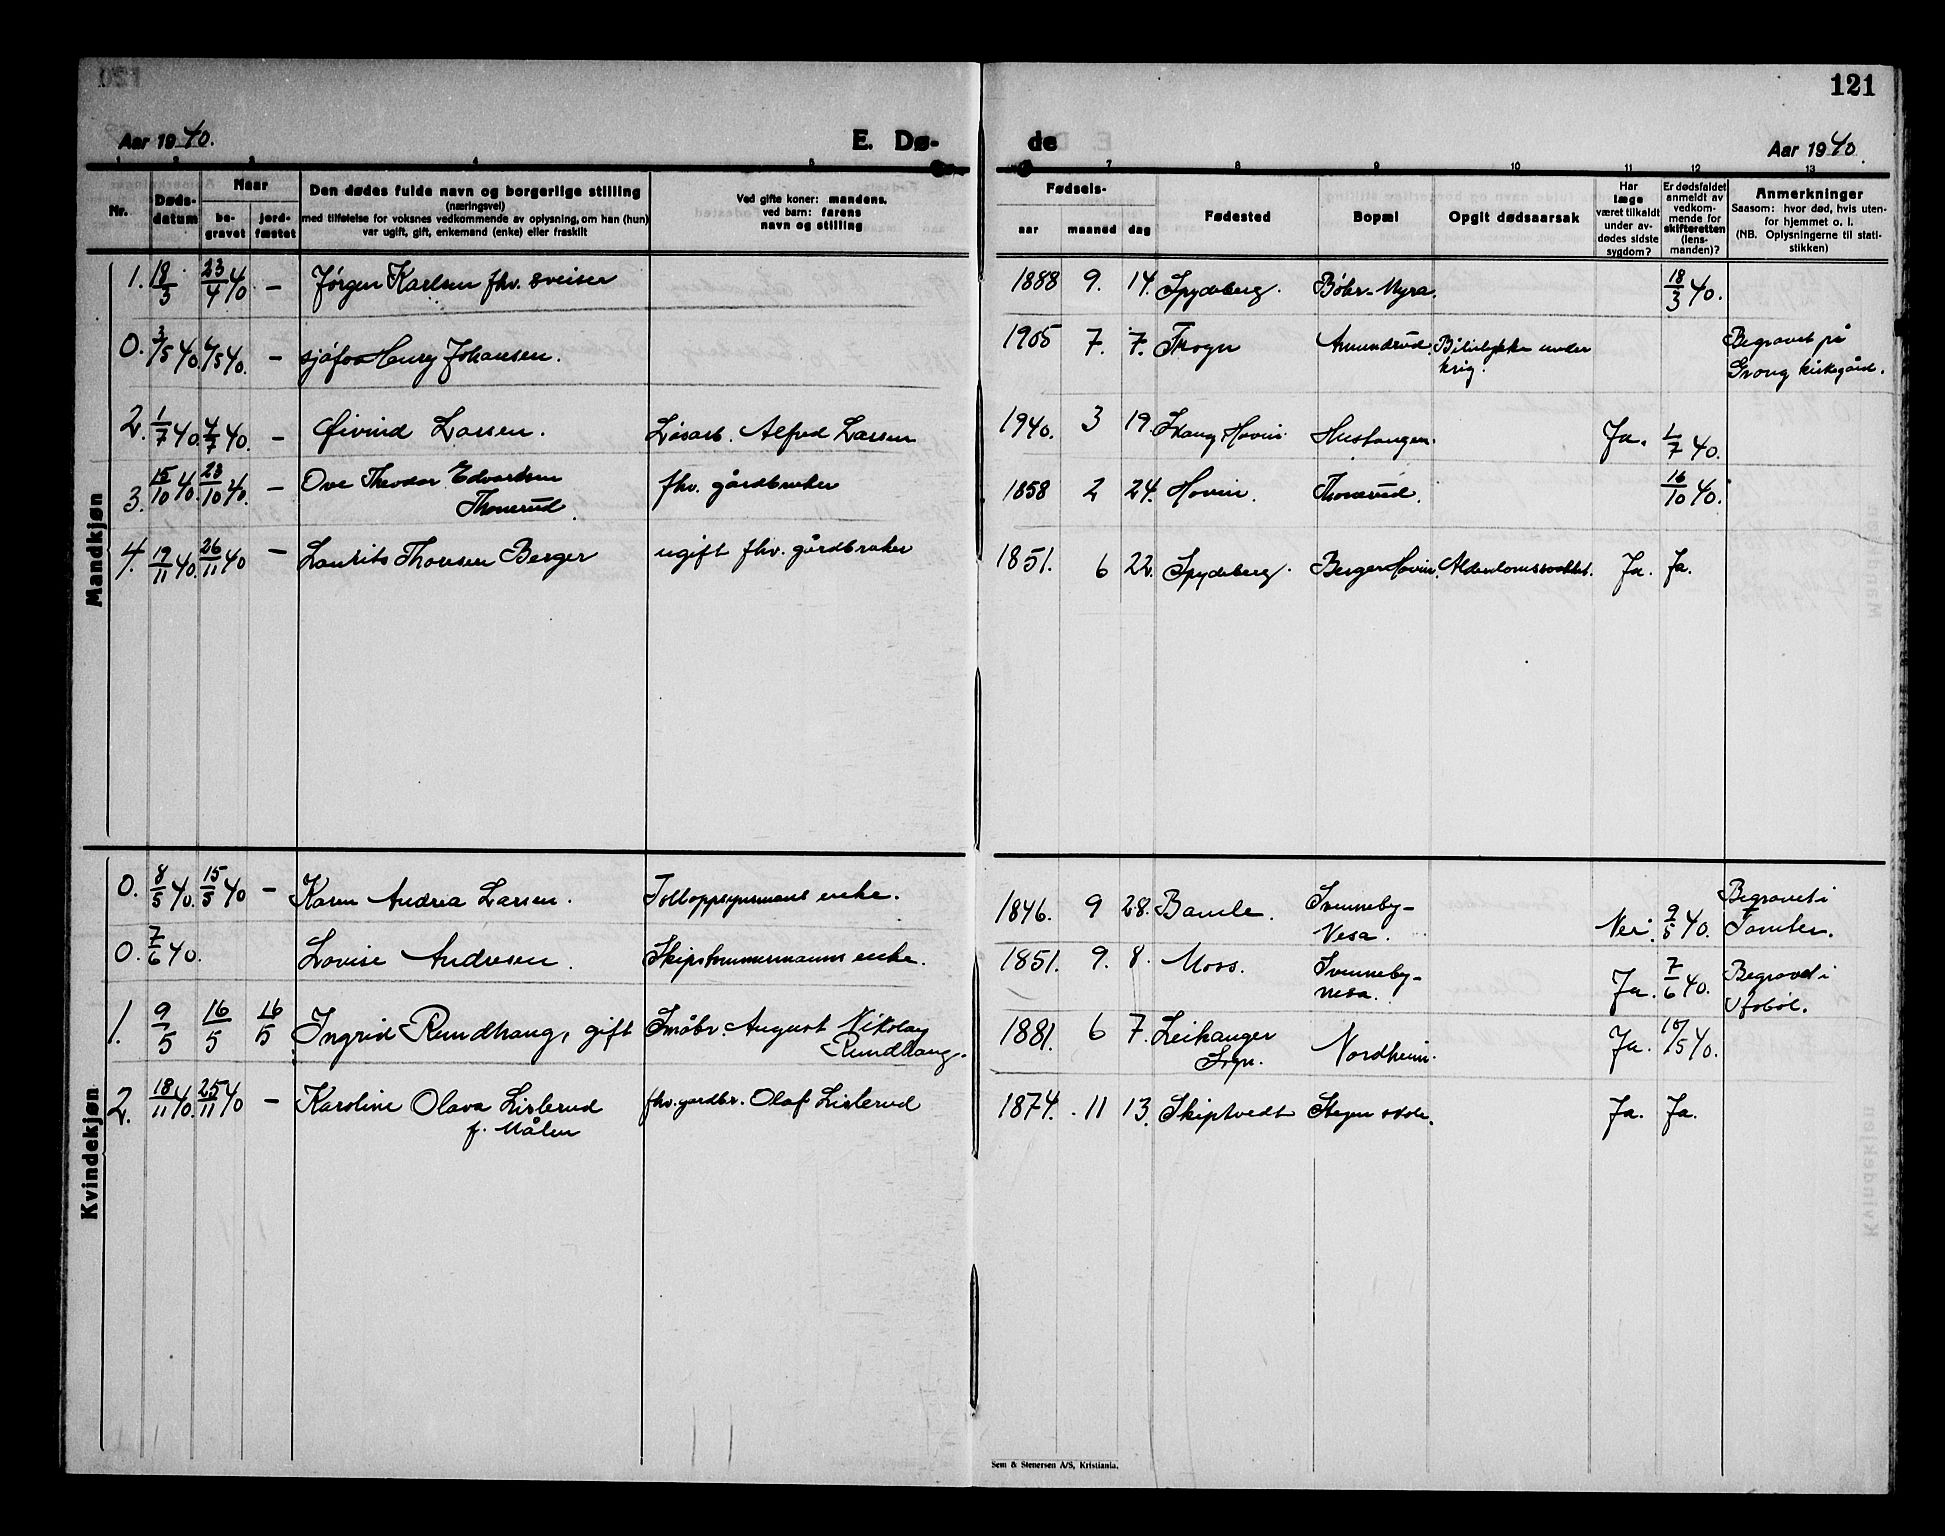 121
Aar 1940.
E. Dø-
de
Aar 1940.
1 2 3 4 5
7 8 9 10 11 12 13
Nr.
Døds-
datum
Naar
be-
gravet
jord-
fæstet
Den dødes fulde navn og borgerlige stilling
(næringsvei)
med tilføielse for voksnes vedkommende av oplysning, om han (hun)
var ugift, gift, enkemand (enke) eller fraskilt
Ved gifte koner: mandens,
ved barn: farens
navn og stilling
Fødsels-
aar
maaned
dag
Fødested
Bopæl
Opgit dødsaarsak
Har
læge
været tilkaldt
under av-
dødes sidste
sygdom?
Er dødsfaldet
anmeldt av
vedkom-
mende for
skifteretten
(lens-
manden)?
Anmerkninger
Saasom: hvor død, hvis uten-
for hjemmet o. l.
(NB. Oplysningerne til stati-
stikken)
Mandkjøn
1. 18/3 23/4 40 – Jørgen Karlsen fhv. sveiser 1888 9. 14. Spydeberg. Myra. 18/3 40.
0. 3/5 40. 6/5 40. – sjåfør Henry Johansen. 1905 7. 7. Trogn Amundrud Bilulykke under
krig.
Begravet på
Grong kirkegård.
2. 1/7 40. 4/7 40. – Øivind Larsen. Løsarb. Alfred Larsen 1940. 3 19. Hovin Ja. 1/7 40.
3. 15/10 40. 23/10 40. – Ove Theodor Edvardsen
Thonerud.
fhv. gårdbruker 1858 2 24. Hovin. Thonerud. 16/10 40.
4. 19/11 40. 26/11 40 – Laurits Thoresen Berger ugift fhv. gårdbruker 1851. 6 22. Spydeberg. Berger Hovin. Alderdomssvakhet. Ja. Ja.
Kvindekjøn
0. 8/5 40. 15/5 40 – Karen Andrea Larsen. Tolloppsynsmans enke. 1846. 9 28. Bamle. Svenneby-
Vesa.
Nei. 9/5 40. Begravet i
Tomter.
0. 7/6 40. Lovise Andresen. Skipstømmermanns enke. 1851. 9. 8. Moss. Svenneby-
nesa.
Ja. 7/6 40. Begravet i
Hobøl.
1. 9/5 16/5 16/5 Ingrid Rundhaug, gift Småbr. August Nikolay
Rundhaug.
1881. 6 7. Leikanger
Sogn.
Nordheim. Ja. 10/5 40.
2. 18/11 40. 25/11 40 – Karoline Olava Lislerud
f. Målen
fhv. gardbr. Olaf Lislerud 1874. 11 13. Skiptvedt Stegen skole. Ja. Ja.
Sem & Stenersen A/S, Kristiania.